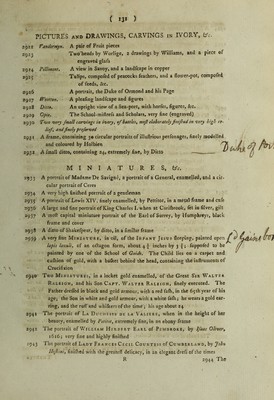 ( 131 )
PICTURES and DRAWINGS, CARVINGS in IVORY, &c.
2922 Vanderneps. A pair of Fruit pieces
2923 Two heads by Worlige, 2 drawings by Williams, and a piece of
engraved glass
2924 Pillement. A view in Savoy, and a landscape in copper
2925 Tulips, composed of peacocks feathers, and a flower-pot, composed
of seeds, &c.
2926 A portrait, the Duke of Ormond and his Page
2927 Wootton. A pleasing landscape and figures
2928 Ditto. An upright view of a sea-port, with horses, figures, &c.
2929 Opie. The school-mistress and Scholars, very fine (engraved)
2930 Two very small carvings in ivory, of battles, most elaborately finished in very high re-
lief, and finely preserved
2931 A frame, containing 30 circular portraits of illustrious personages, finely modelled
and coloured by Holbien
2932 A small ditto, containing 24, extremely fine, by Ditto
Duke of
MINIATURES, &c.
2933 A portrait of Madame De Savigni, a portrait of a General, enamelled, and a cir-
cular portrait of Ceres
2934 A very high finished portrait of a gentleman
2935 A portrait of Lewis XIV. finely enamelled, by Petitot, in a metal frame and case
2936 A large and fine portrait of King Charles I. when at Carisbrook, set in silver, gilt
2937 A most capital miniature portrait of the Earl of Surrey, by Humphreys, black
frame and cover
2938 A ditto of Shakespeare, by ditto, in a similar frame
2939 A very fine Miniature, in oil, of the Infant Jesus sleeping, painted upon
lapis lazuli, of an octagon form, about 4¾ inches by 3½ (supposed to be
painted by one of the School of Guido. The Child lies on a carpet and
cushion of gold, with a basket behind the head, containing the instruments of
Crucifixion
2940 Two Miniatures, in a locket gold enamelled, of the Great Sir Walter
Raleigh, and his son Capt. Walter Raleigh, finely executed. The
Father dressed in black and gold armour, with a red sash, in the 65th year of his
age; the Son in white and gold armour, with a white sash; he wears a gold ear-
ring, and the ruff and whiskers of the time; his age about 24
2941 The portrait of La Duchesse de la Valiere, when in the height of her
beauty, enamelled by Petitot, extremely fine, in an ebony frame
2942 The portrait of William Herbert Earl of Pembroke, by Isaac Oliver,
1616; very fine and highly finished
2943 The portrait of Lady Frances Cecil Countess of Cumberland, by John
Hoskins, finished with the greatest delicacy, in an elegant dress of the times
R 2944 The